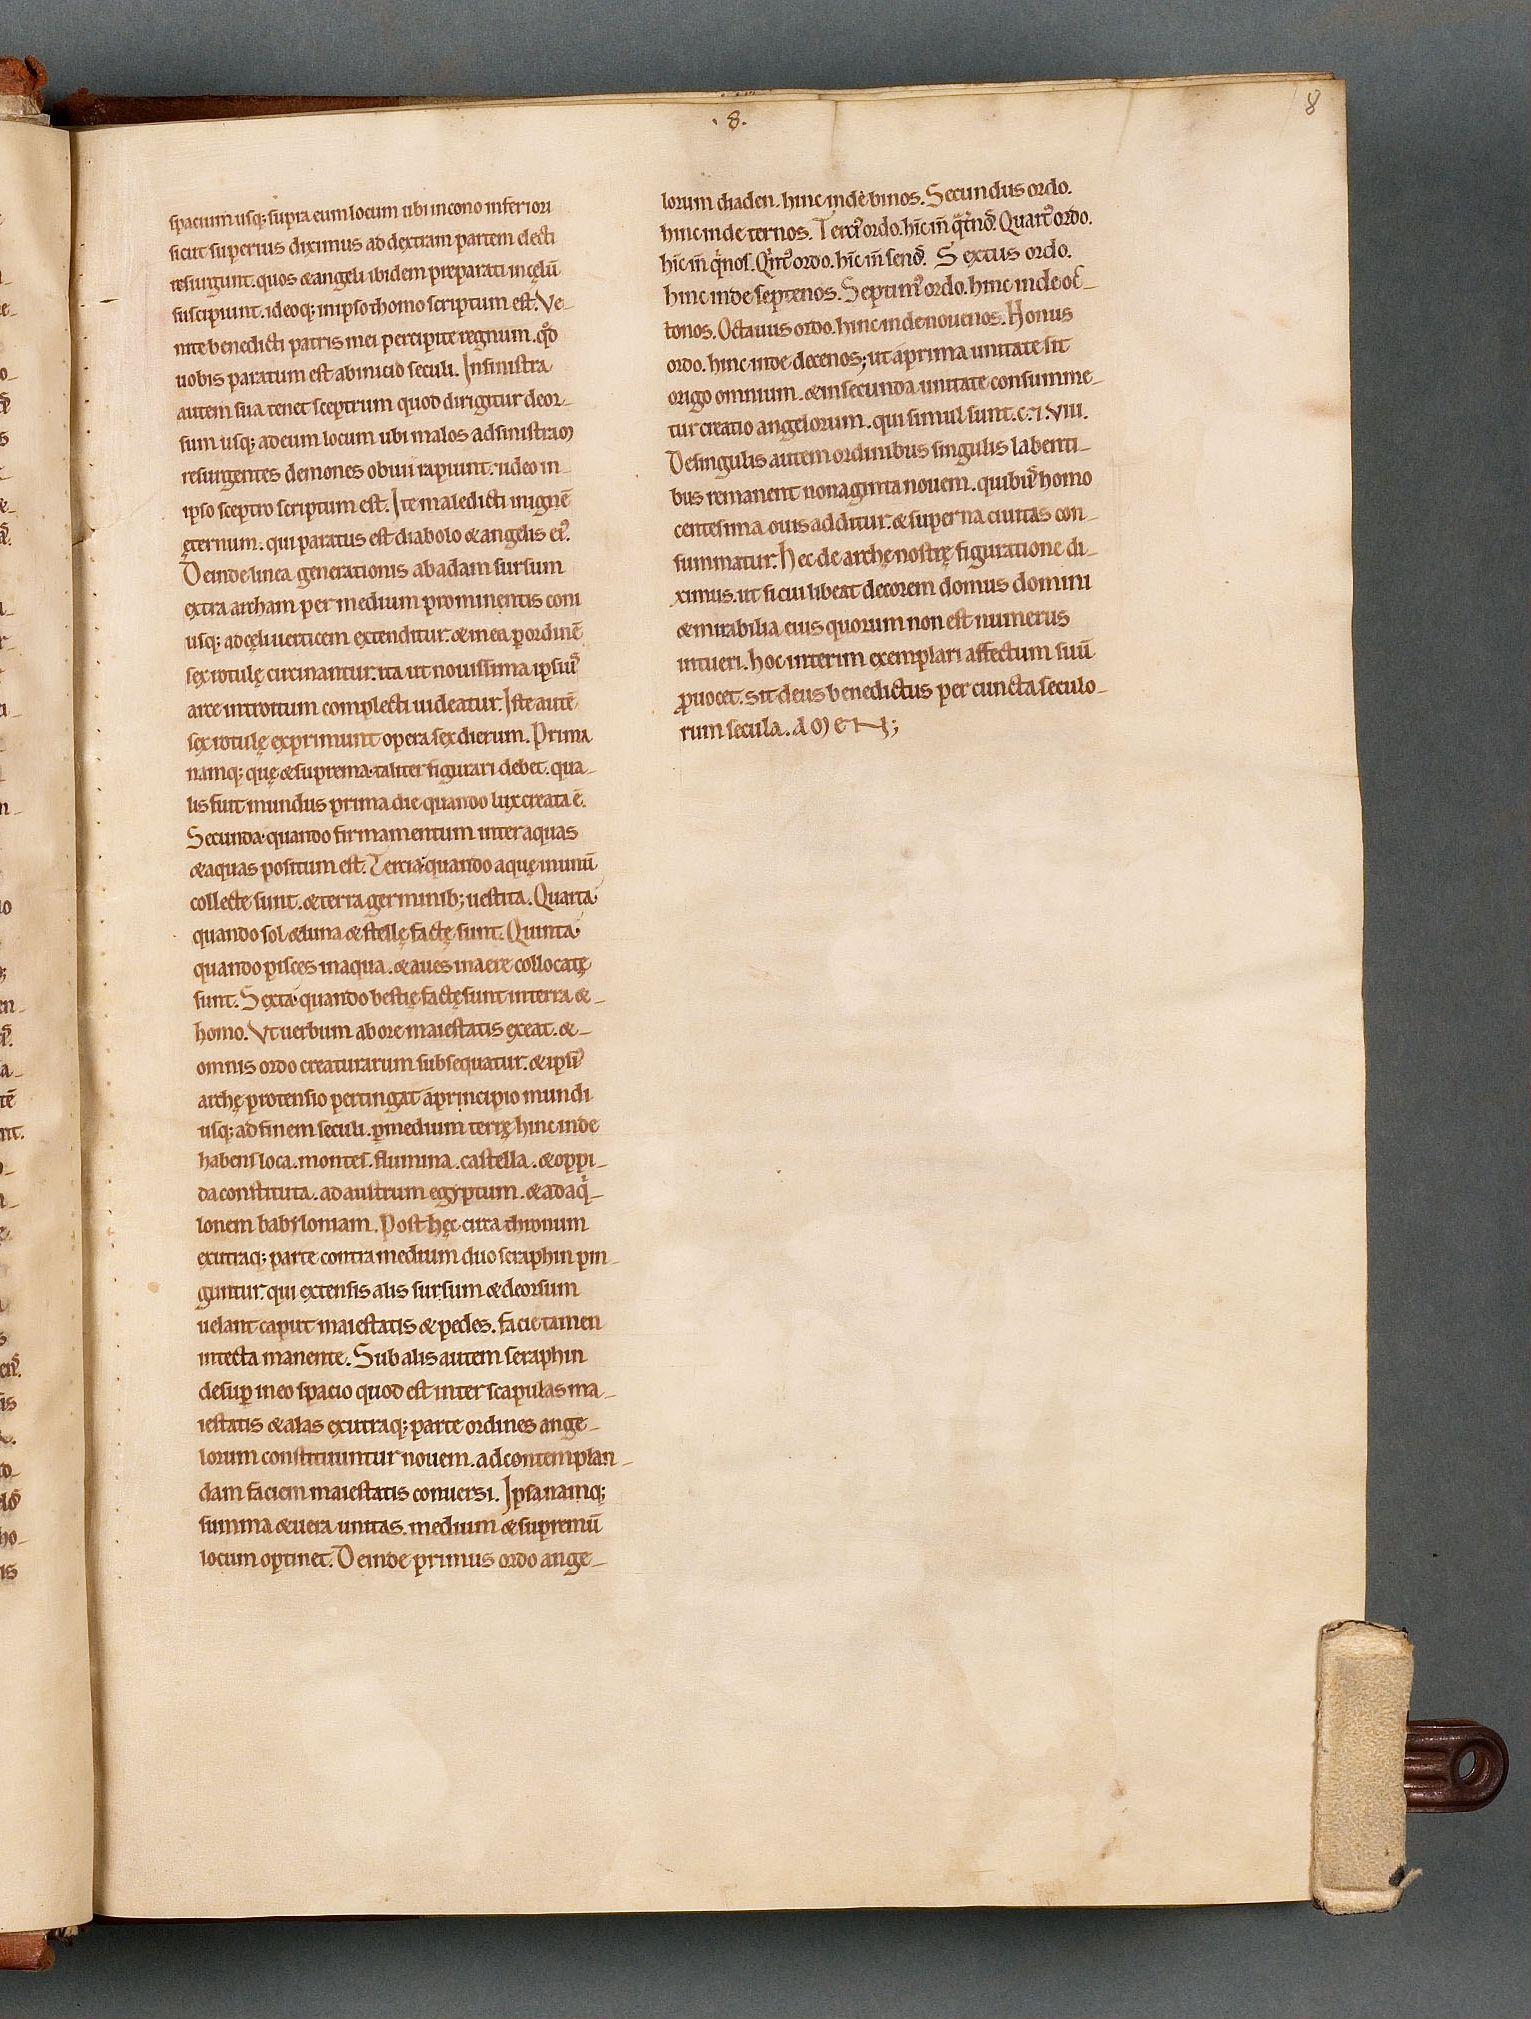 .8.
8
spacium usq; supra eum locum ubi in cono inferiori
sicut superius diximus ad dextram partem electi
resurgunt. quos & angeli ibidem preparati in cęlū
suscipiunt. ideoq; in ipso thomo scriptum est. Ve-
nite benedicti patris mei percipite regnum. qđ
uobis paratum est ab inicio seculi. In sinistra
autem sua tenet sceptrum quod dirigitur deor-
sum usq; ad eum locum ubi malos ad sinistram
resurgentes demones obuii rapiunt. & ideo in
ipso sceptro scriptum est. Ite maledicti in ignē
ęternum. qui paratus est diabolo & angelis eiꝰ.
Deinde linea generationis ab adam sursum
extra archam per medium prominentis coni
usq; ad cęli uerticem extenditur. & in ea ꝑ ordinē
sex rotulę circinantur. ita ut nouissima ipsius
arcę introitum complecti uideatur. Iste autē
sex rotulę exprimunt opera sex dierum. Prima
namq; quę & suprema. taliter figurari debet. qua-
lis fuit mundus prima die quando lux creata ē.
Secunda. quando firmamentum inter aquas
& aquas positum est. Tercia. quando aquę in unū
collecte sunt. & terra germinib; uestita. Quarta.
quando sol & luna & stellę factę sunt. Quinta.
quando pisces in aqua. & aues in aere collocatę
sunt. Sexta. quando bestię factę sunt in terra &-
homo. Vt uerbum ab ore maiestatis exeat. &-
omnis ordo creaturarum subsequatur. & ipsiꝰ
archę protensio pertingat a principio mundi
usq; ad finem seculi. ꝑ medium terrę hinc inde
habens loca. montes. flumina. castella. & oppi-
da constituta. ad austrum egyptum. & ad aq̇-
lonem babyloniam. Post hęc circa thronum
ex utraq; parte contra medium duo seraphin pin-
guntur. qui extensis alis sursum & deorsum
uelant caput maiestatis & pedes. facie tamen
intecta manente. Sub alis autem seraphin
desuꝑ in eo spacio quod est inter scapulas ma-
iestatis & alas ex utraq; parte ordines ange-
lorum constituuntur nouem. ad contemplan-
dam faciem maiestatis conuersi. Ipsa namq;
summa & uera unitas. medium & supremū
locum optinet. Deinde primus ordo ange-
lorum hinc inde binos. Secundus ordo.
hinc inde ternos. Terciꝰ ordo. hīc īn q̇t̄nos. Quartꝰ ordo.
hīc īn q̇nos. Q̇ntꝰ ordo. hīc īn senos. Sextus ordo.
hinc inde septenos. Septimꝰ ordo. hinc inde oc-
tonos. Octauus ordo. hinc inde nouenos. Nonus
ordo. hinc inde decenos; ut a prima unitate sit
origo omnium. & in secunda unitate consumme-
tur creatio angelorum. qui simul sunt. c. & VIII.
De singulis autem ordinibus singulis labenti-
bus remanent nonaginta nouem. quibus homo
centesima ouis additur. & superna ciuitas con-
summatur. Hec de archę nostrę figuratione di-
ximus. ut si cui libeat decorem domus domini
& mirabilia eius quorum non est numerus
intueri. hoc interim exemplari affectum suū
ꝓuocet. sit deus benedictus per cuncta seculo-
rum secula. AMEN;